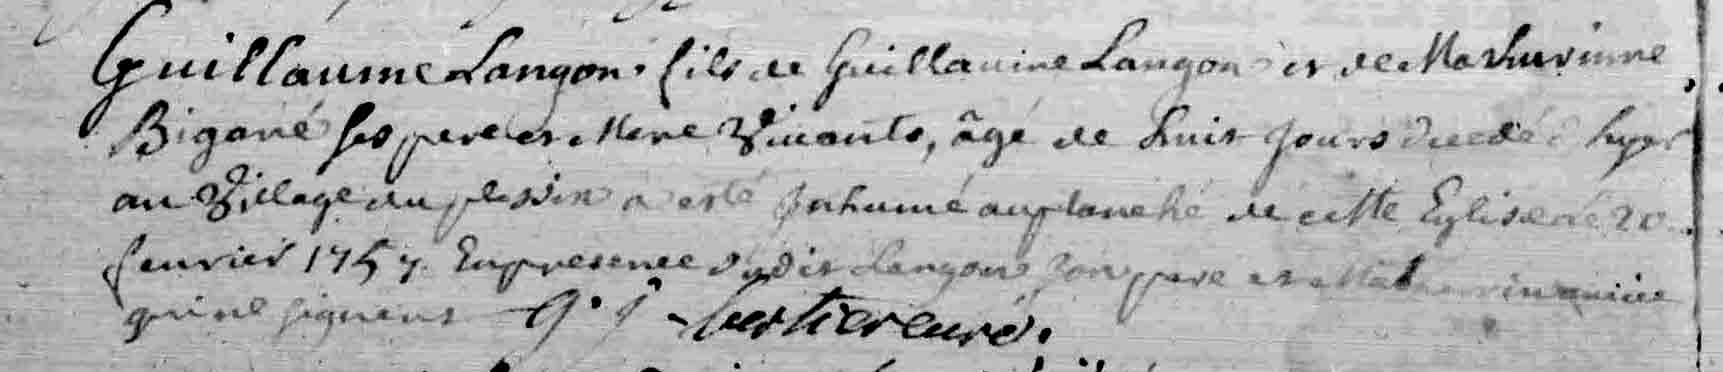 Guillaume Langon fils de Guillaume Langon et de Mathurinne
Bigarré ses pere et Mere Vivants, âgé de huit jours decedé hyer
au Village du plessix a esté Inhumé au planché de cette Eglise le 20
feuvrier 1757. En presence dudit Langon son pere et Mathurin
qui ne signent G. J. bertier curé.